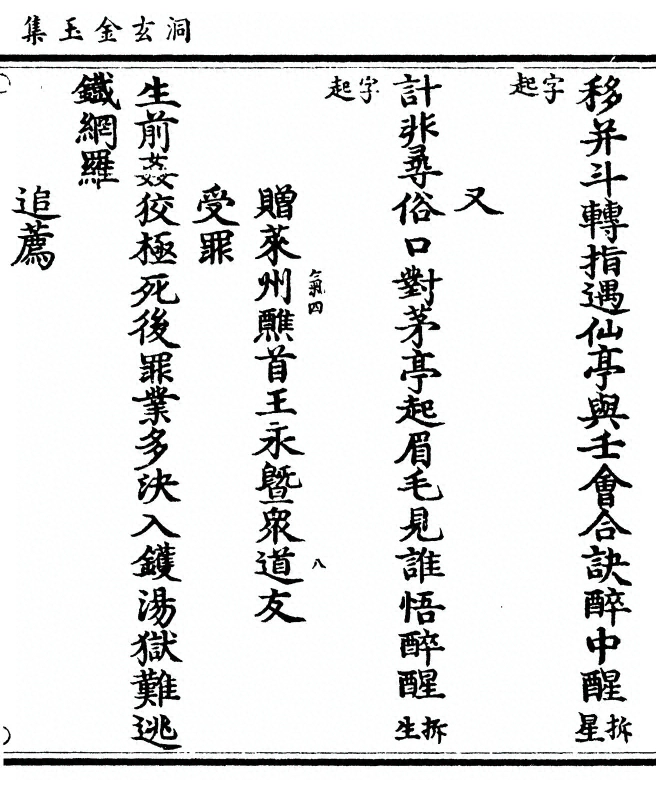 洞玄金玉集
移并斗轉指遇仙亭與壬會合訣醉中醒拆星
字起
又
計非尋俗口對茅亭起眉毛見誰悟醉醒拆生
字起
氣四 八
贈萊州醮首王永暨衆道友
受罪
生前姦狡極死後罪業多決入鑊湯獄難逃
鐵網羅
追薦